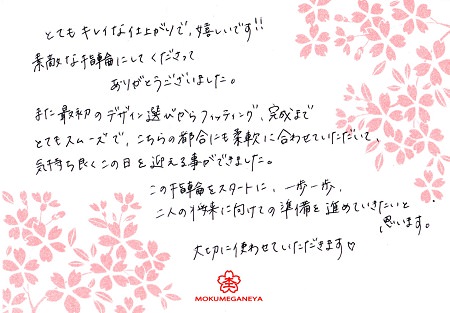 とてもキレイな仕上がりで、嬉しいです!!
素敵な指輪にしてくださって
ありがとうございました。
また最初のデザイン選びからフィッティング、完成まで
とてもスムーズで、こちらの都合にも柔軟に合わせていただいて、
気持ち良くこの日を迎える事ができました。
この指輪をスタートに、一歩一歩、
二人の将来に向けての準備を進めていきたいと
思います。
大切に使わせていただきます♡
MOKUMEGANEYA